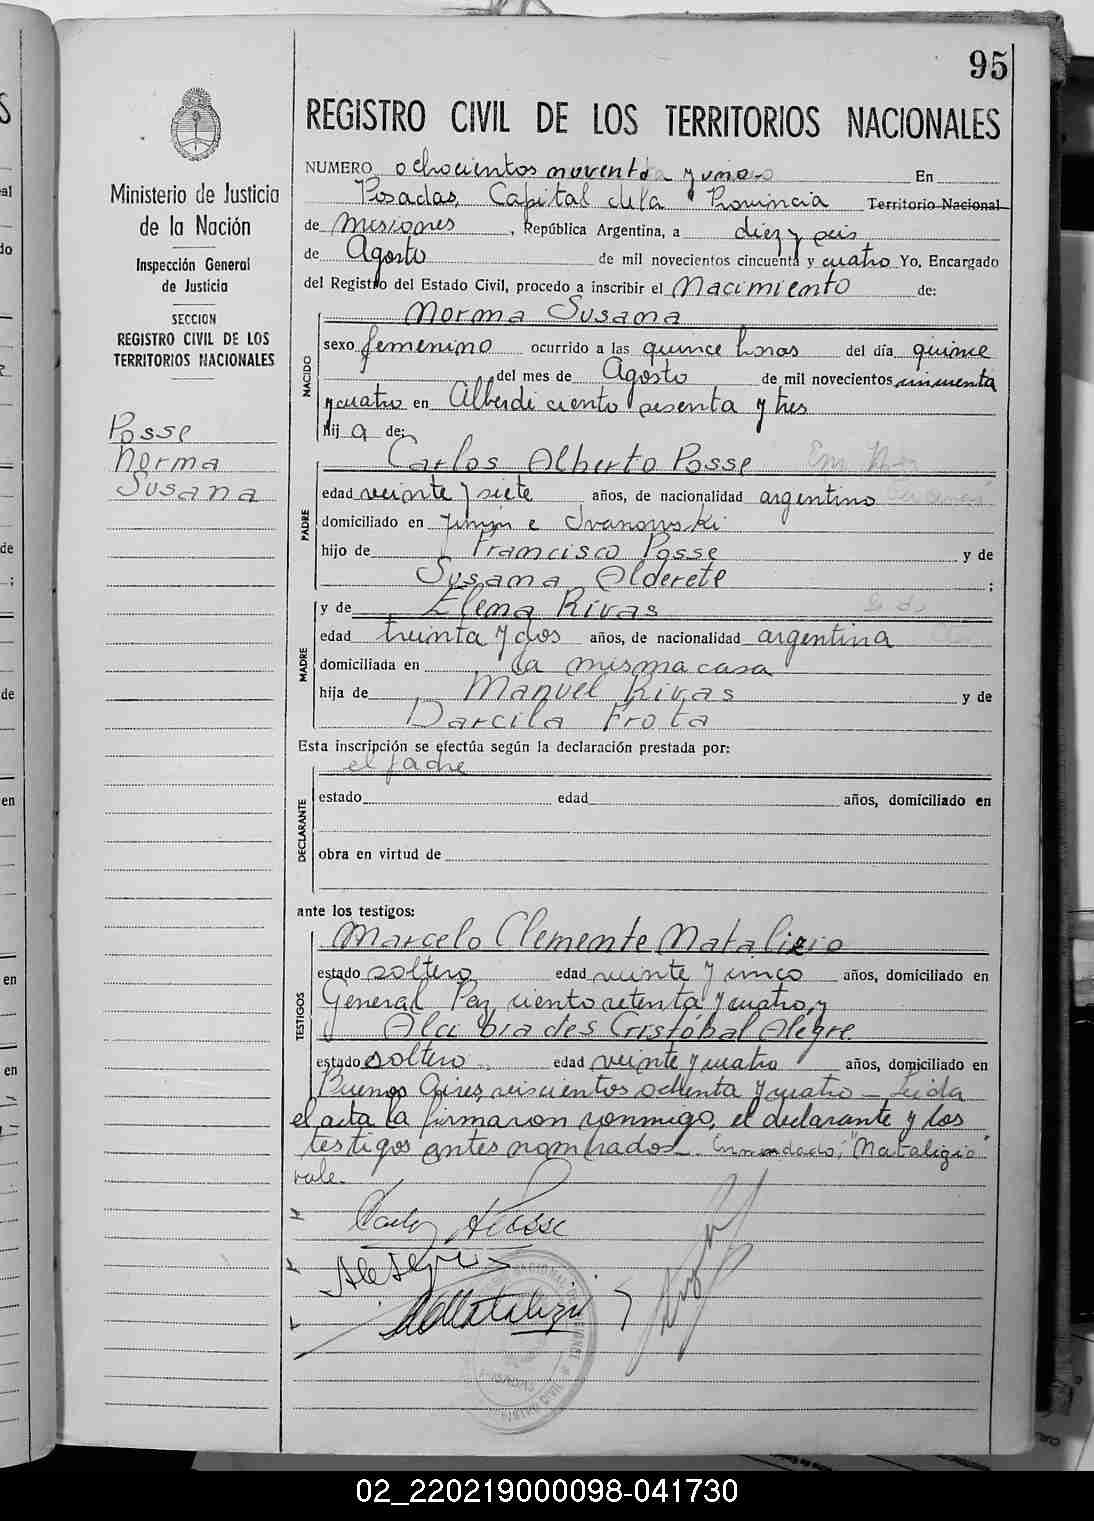 95
REGISTRO CIVIL DE LOS TERRITORIOS NACIONALES
Ministerio de Justicia
de la Nación
Inspección General
de Justicia
SECCION
REGISTRO CIVIL DE LOS
TERRITORIOS NACIONALES
Posse
Norma
Susana
NUMERO ochocientos noventa y uno En
Posadas, Capital de la Provincia Territorio Nacional
de Misiones, República Argentina, a diez y seis
de Agosto de mil novecientos cincuenta y cuatro Yo, Encargado
del Registro del Estado Civil, procedo a inscribir el Nacimiento de:
Norma Susana
NACIDO
sexo femenino ocurrido a las quince horas del día quince
del mes de Agosto de mil novecientos cincuenta
y cuatro en Alberdi ciento sesenta y tres
hij a de:
Carlos Alberto Posse
PADRE
edad veinte y siete años, de nacionalidad argentino
domiciliado en Junín e Ivanowski
hijo de Francisco Posse y de
Susana Alderete ;
MADRE
y de Elena Rivas
edad treinta y dos años, de nacionalidad argentina
domiciliada en la misma casa
hija de Manuel Rivas y de
Darcila Frota
Esta inscripción se efectúa según la declaración prestada por:
el padre
DECLARANTE
estado edad años, domiciliado en
obra en virtud de
ante los testigos:
Marcelo Clemente Natalizio
TESTIGOS
estado soltero edad veinte y cinco años, domiciliado en
General Paz ciento setenta y cuatro, y
Alcibiades Cristobal Alegre
estado soltero edad veinte y cuatro años, domiciliado en
Buenos Aires seiscientos ochenta y cuatro — Leida
el acta la firmaron conmigo, el declarante y los
testigos antes nombrados. Enmendado: "Natalizio"
vale.
Carlos A Posse
02_220219000098-041730